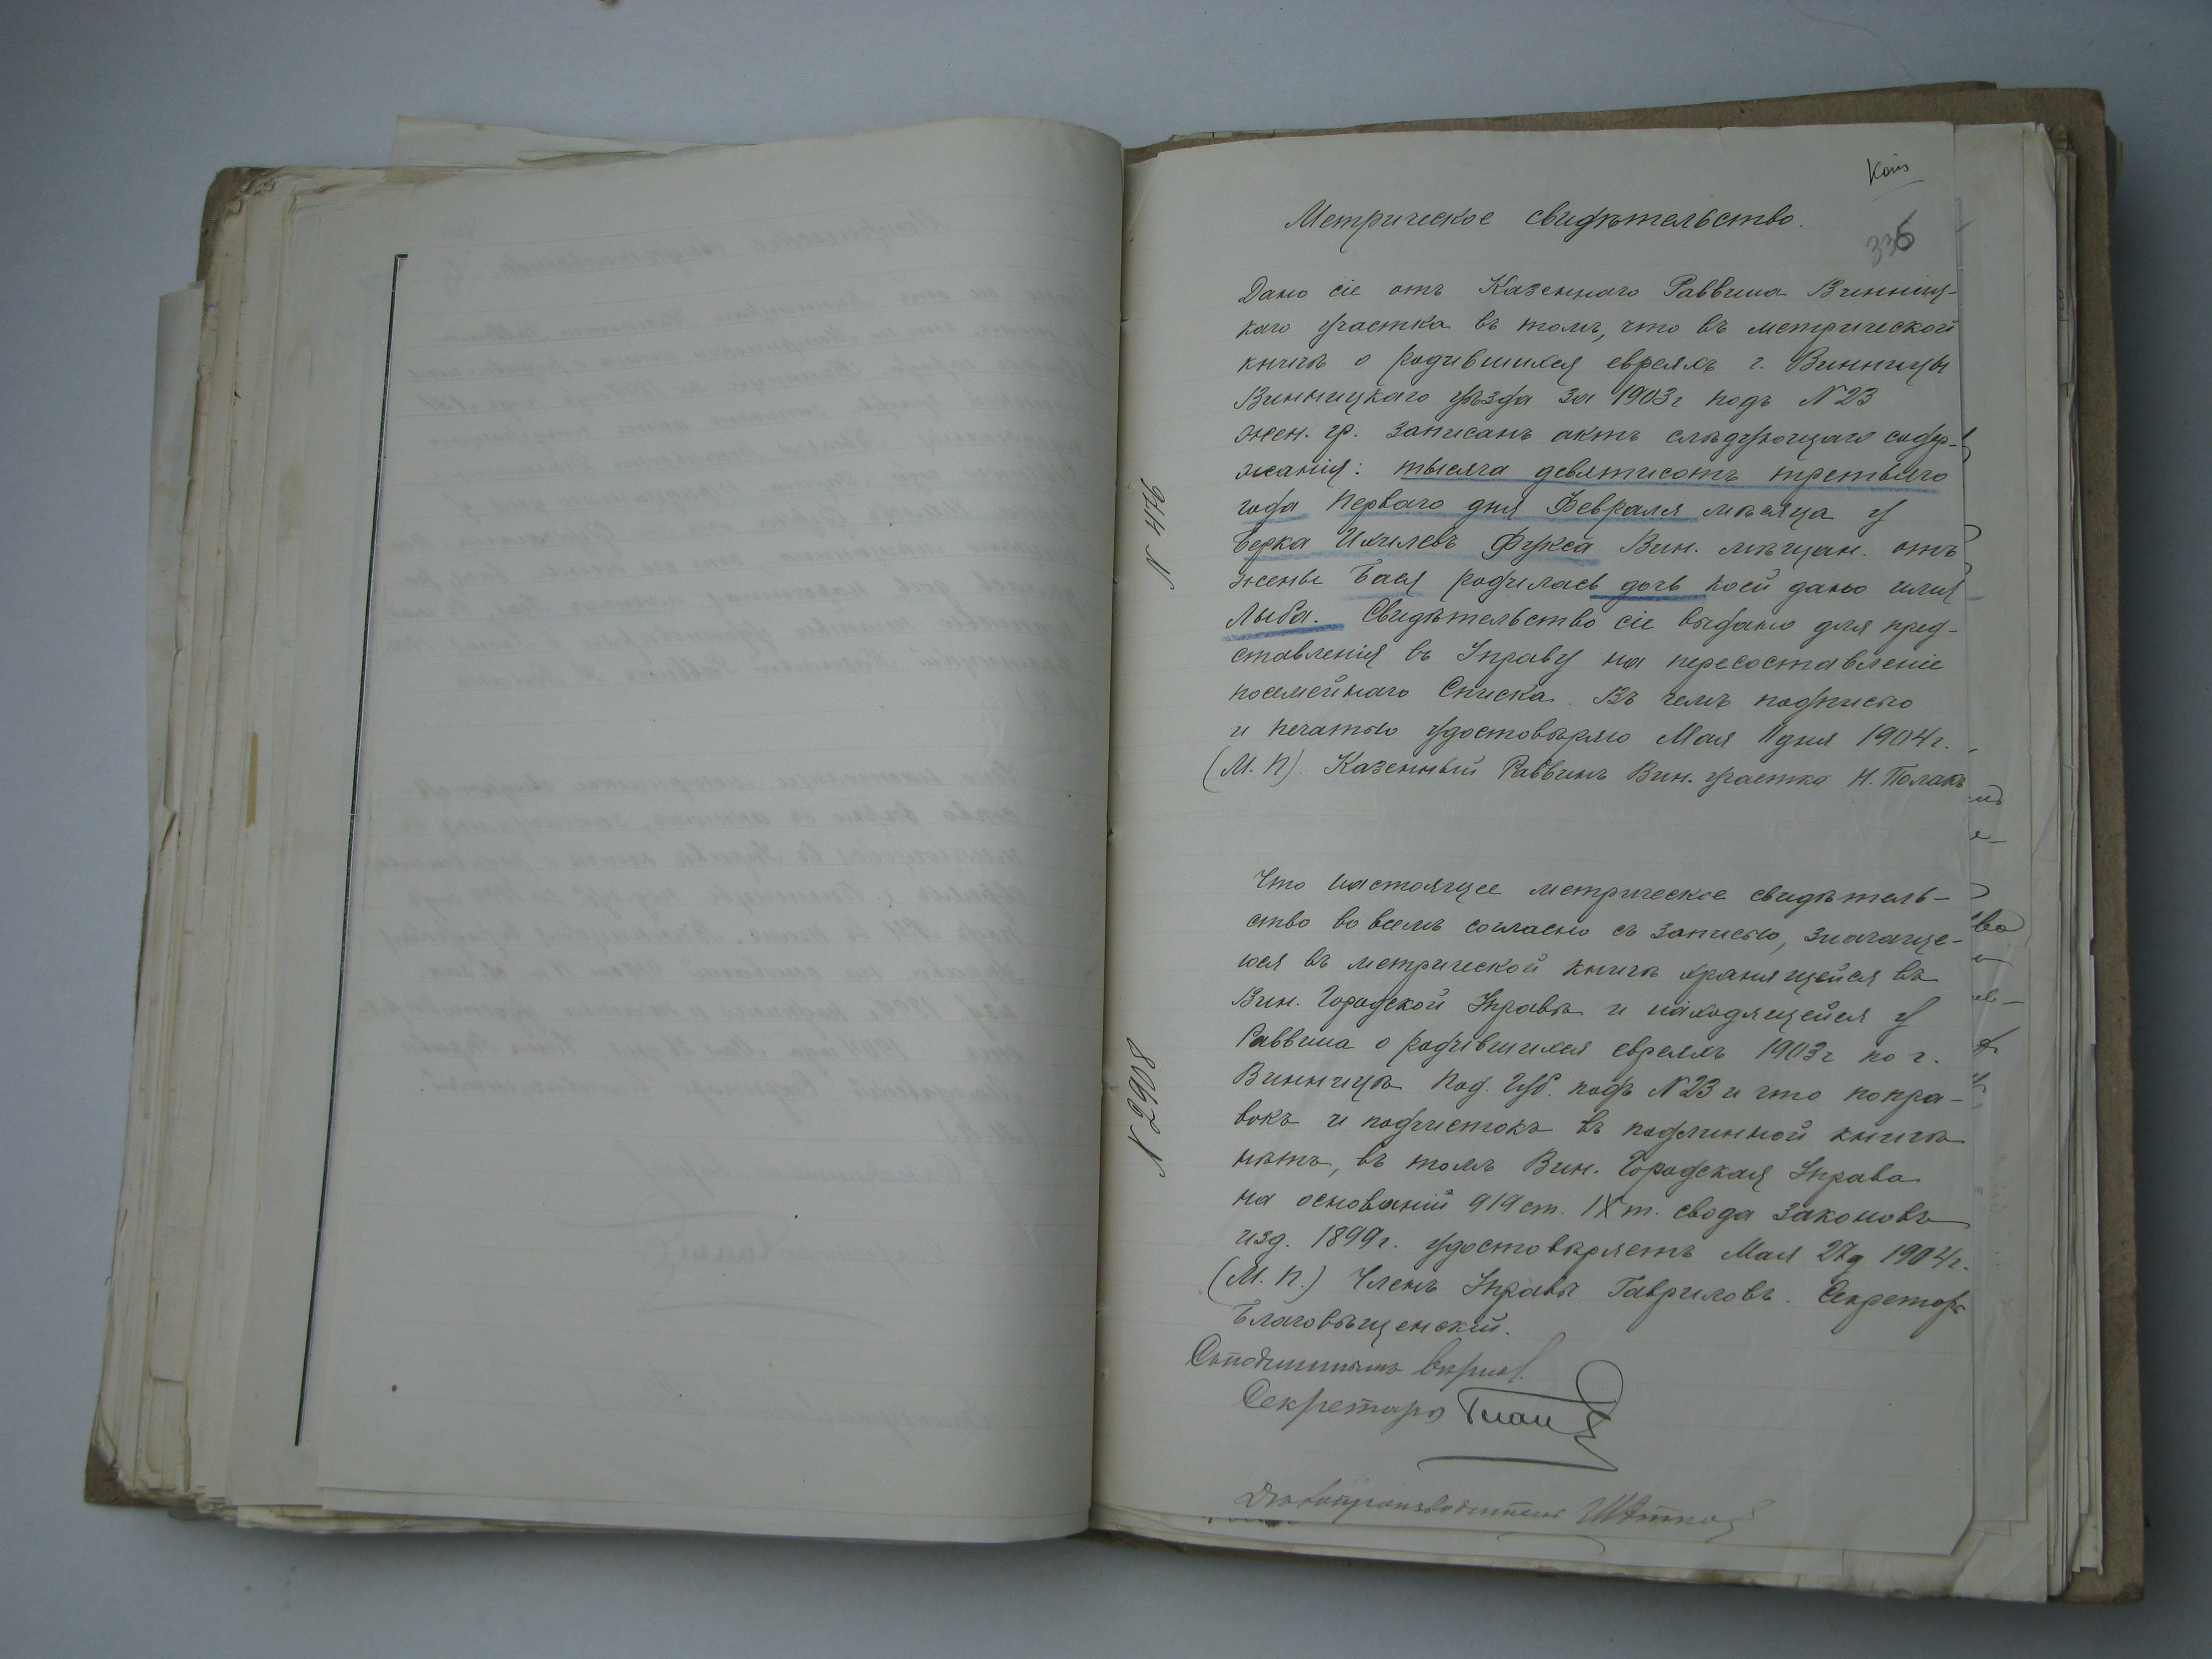 Копія
336
Метрическое свидѣтельство.
Дано сіе отъ Казеннаго Раввина Винниц-
каго участка въ томъ, что въ метрической
книгѣ о родившихся евреяхъ г. Винницы
Винницкаго уѣзда за 1903 г подъ N 23
жен. гр. записанъ актъ слѣдующаго содер-
жанія: тысяча девятисотъ третьяго
года перваго дня Февраля мѣсяца у
Берка Ихилевъ Фукса Вин. мѣщан. отъ
жены Бася родилась дочь коей дано имя
Лыба. Свидѣтельство сіе выдано для пред-
ставленія въ Управу на пересоставленіе
посемейнаго Списка. Въ чемъ подписью
и печатью удостовѣряю Мая 11 дня 1904 г.
(М. П). Казенный Раввинъ Вин. участка Н. Полакъ
N 476
Что настоящее метрическое свидѣтель-
ство во всемъ согласно съ записью, значаще-
юся въ метрической книгѣ хранящейся въ
Вин. Городской Управѣ и находящейся у
Раввина о родившихся евреяхъ 1903 г по г.
Винницѣ Под. Губ. подъ N 23 и что попра-
вокъ и подчистокъ въ подлинной книгѣ
нѣтъ, въ томъ Вин. Городская Управа
на основаніи 919 ст. IX т. свода законовъ
изд. 1899 г. удостовѣряетъ Мая 27 д 1904 г.
(М. П.) Членъ Управы Гавриловъ. Секретарь
Благовѣщенскій.
N 2908
Съ подлиннымъ вѣрно:
Секретарь
Дѣлопроизводитель